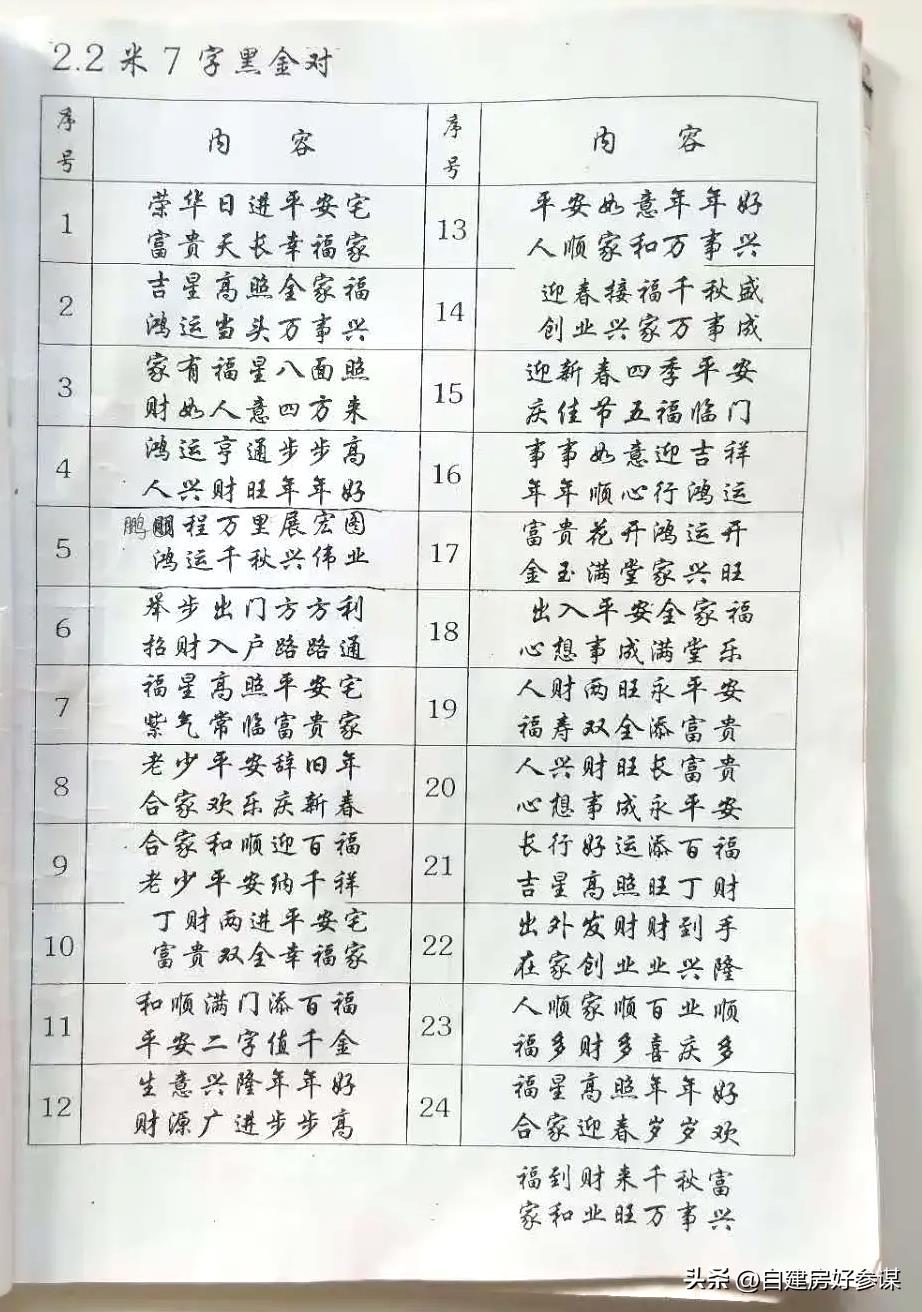 2.2米7字黑金对
序号 内容
1 荣华日进平安宅
富贵天长幸福家
2 吉星高照全家福
鸿运当头万事兴
3 家有福星八面照
财如人意四方来
4 鸿运亨通步步高
人兴财旺年年好
5 鹏程万里展宏图
鸿运千秋兴伟业
6 举步出门方方利
招财入户路路通
7 福星高照平安宅
紫气常临富贵家
8 老少平安辞旧年
合家欢乐庆新春
9 合家和顺迎百福
老少平安纳千祥
10 丁财两进平安宅
富贵双全幸福家
11 和顺满门添百福
平安二字值千金
12 生意兴隆年年好
财源广进步步高
序号 内容
13 平安如意年年好
人顺家和万事兴
14 迎春接福千秋盛
创业兴家万事成
15 迎新春四季平安
庆佳节五福临门
16 事事如意迎吉祥
年年顺心行鸿运
17 富贵花开鸿运开
金玉满堂家兴旺
18 出入平安全家福
心想事成满堂乐
19 人财两旺永平安
福寿双全添富贵
20 人兴财旺长富贵
心想事成永平安
21 长行好运添百福
吉星高照旺丁财
22 出外发财财到手
在家创业业兴隆
23 人顺家顺百业顺
福多财多喜庆多
24 福星高照年年好
合家迎春岁岁欢
福到财来千秋富
家和业旺万事兴
头条 @自建房好参谋